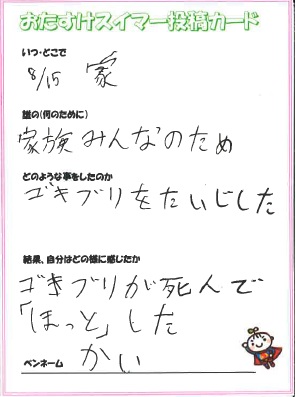 おたすけスイマー投稿カード
いつ・どこで
8/15 家
誰の(何のために)
家族みんなのため
どのような事をしたのか
ゴキブリをたいじした
結果、自分はどの様に感じたか
ゴキブリが死んで
「ほっと」した
ペンネーム かい